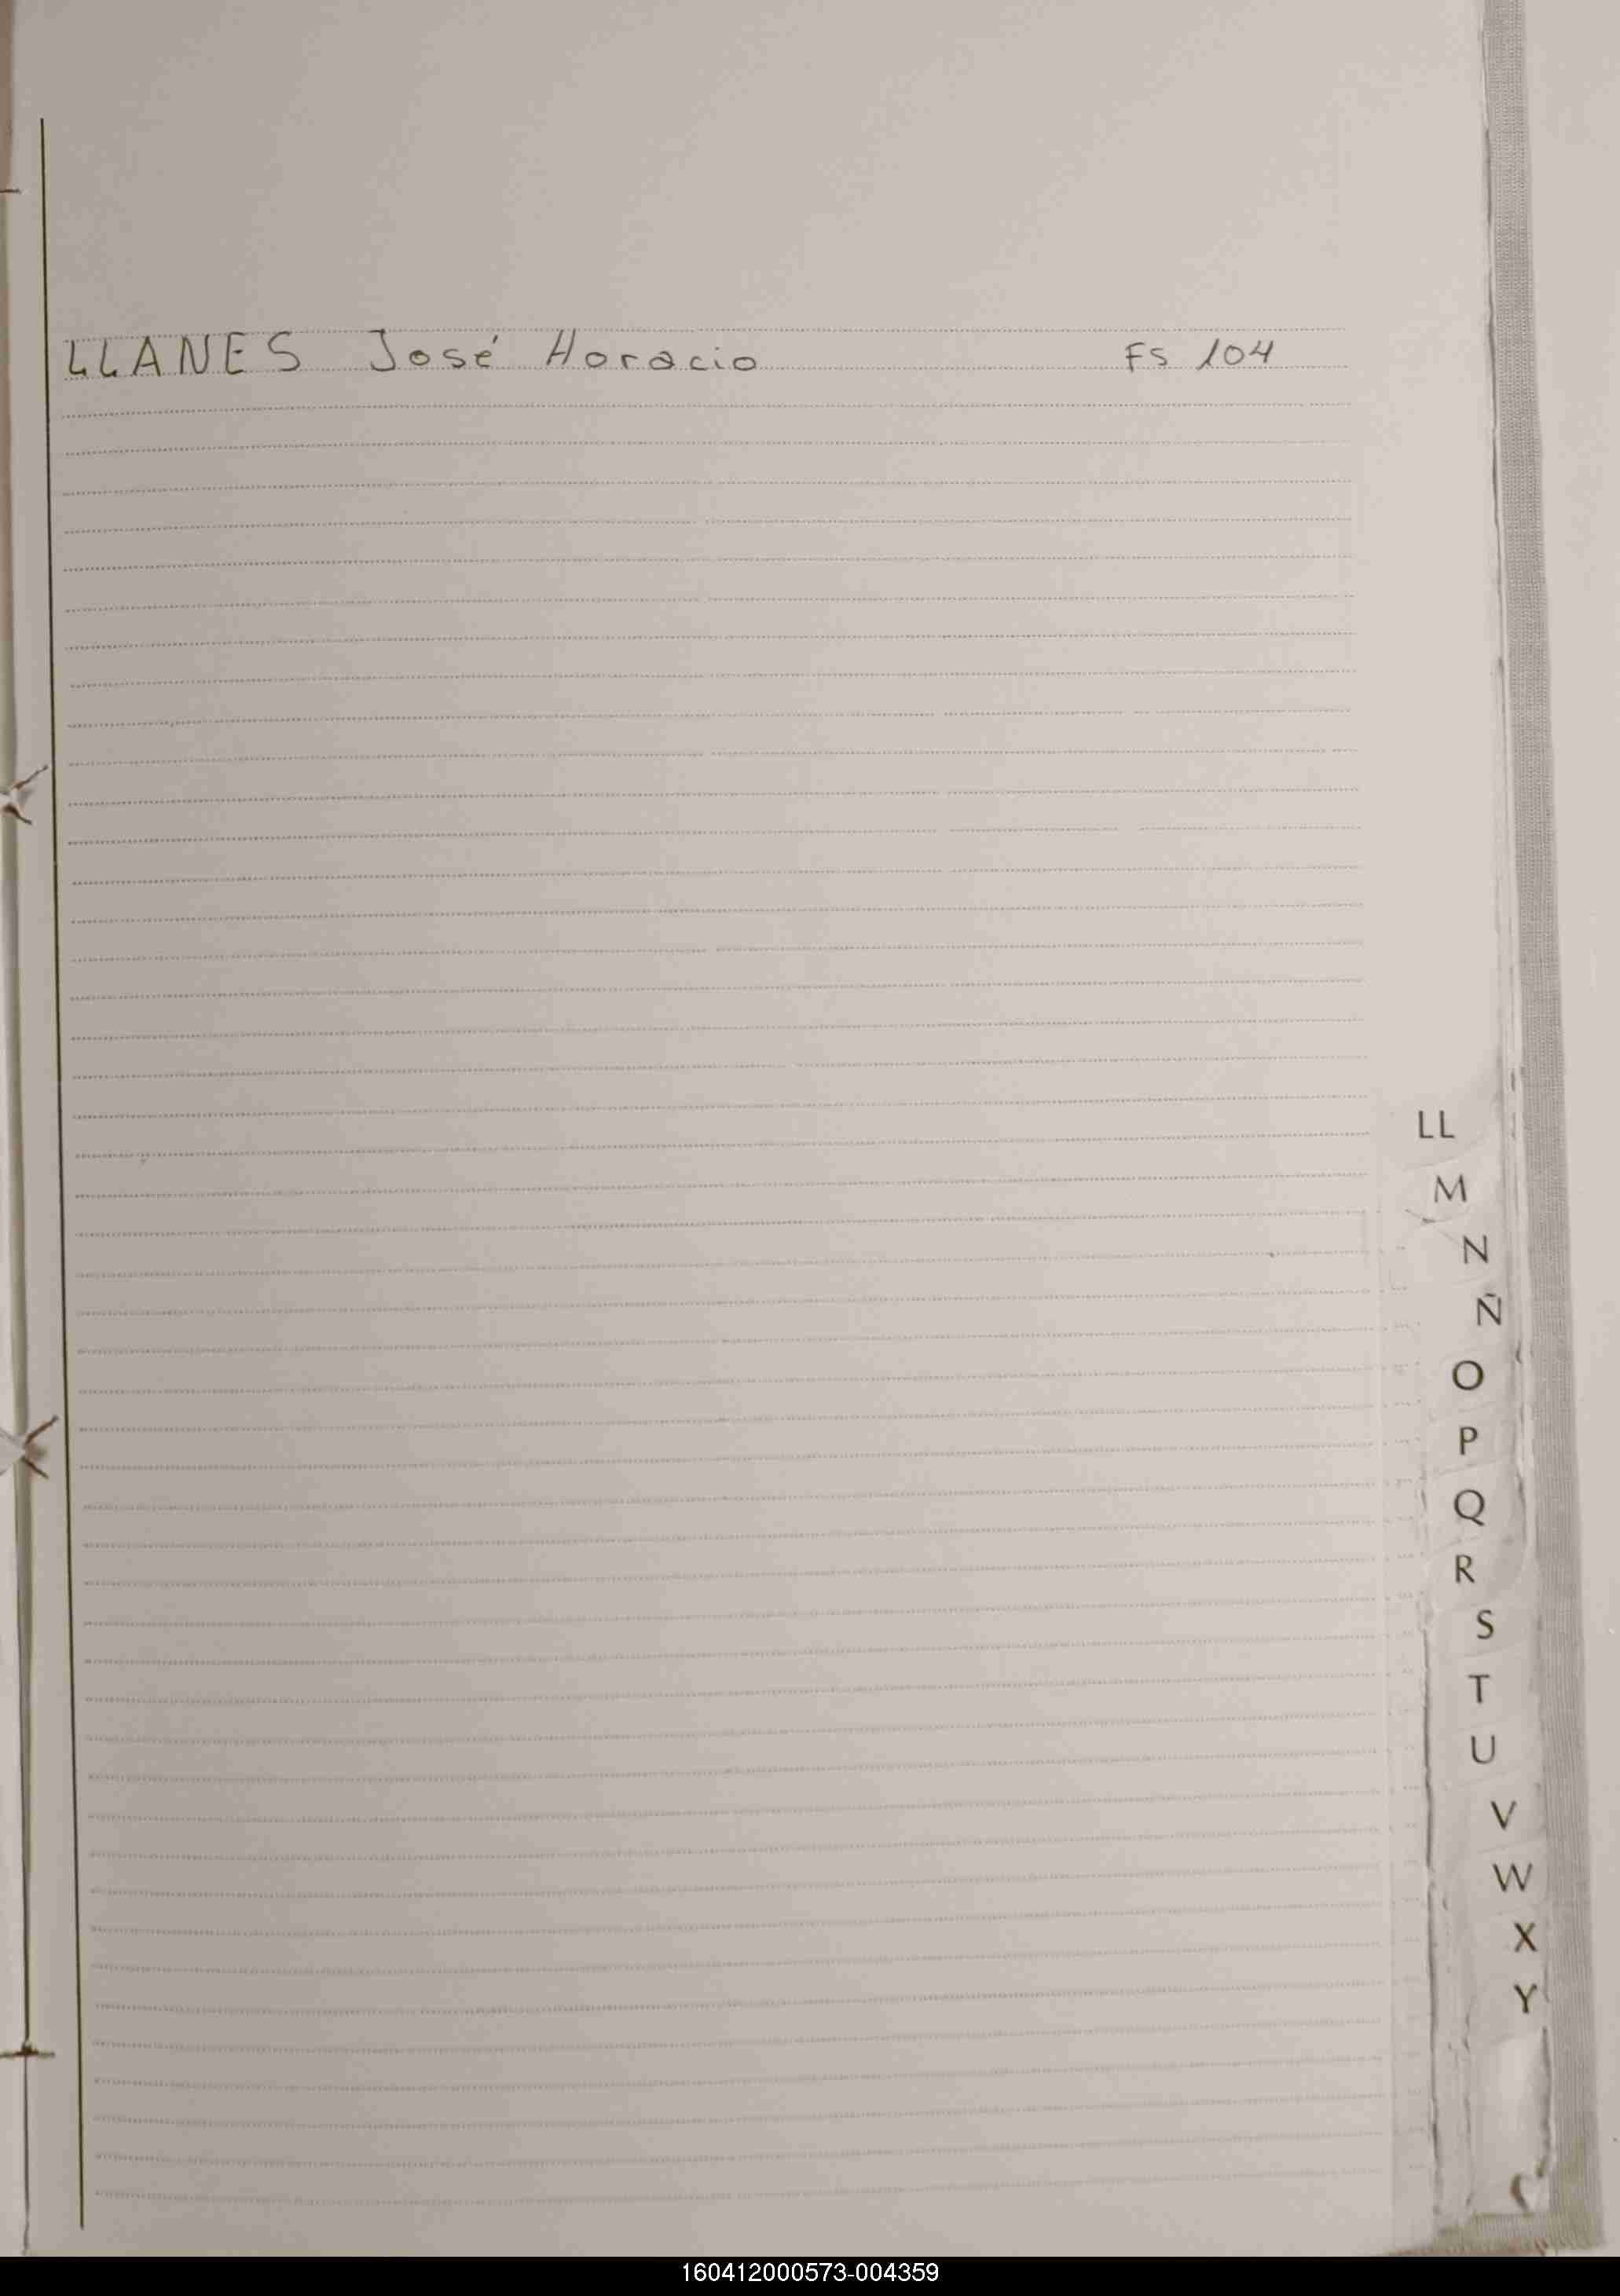 LLANES José Horacio FS 104
LL
M
N
Ñ
O
P
Q
R
S
T
U
V
W
X
Y
160412000573-004359